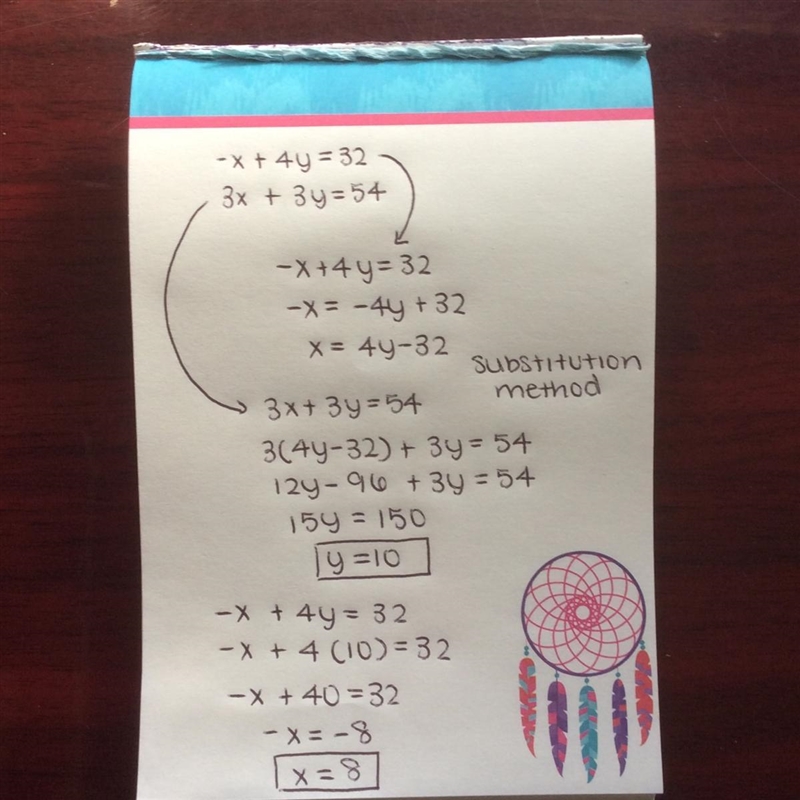 -x + 4y = 32
3x + 3y = 54
-x + 4y = 32
-x = -4y + 32
x = 4y - 32
substitution
method
3x + 3y = 54
3(4y - 32) + 3y = 54
12y - 96 + 3y = 54
15y = 150
y = 10
-x + 4y = 32
-x + 4(10) = 32
-x + 40 = 32
-x = -8
x = 8